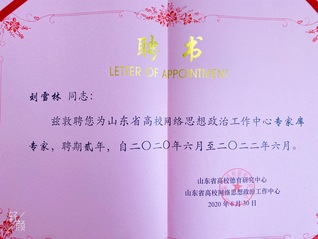 聘书
LETTER OF APPOINTMENT
刘雪林 同志:
兹敦聘您为山东省高校网络思想政治工作中心专家库
专家，聘期贰年，自二〇二〇年六月至二〇二二年六月。
山东省高校德育研究中心
山东省高校网络思想政治工作中心
2020年6月30日